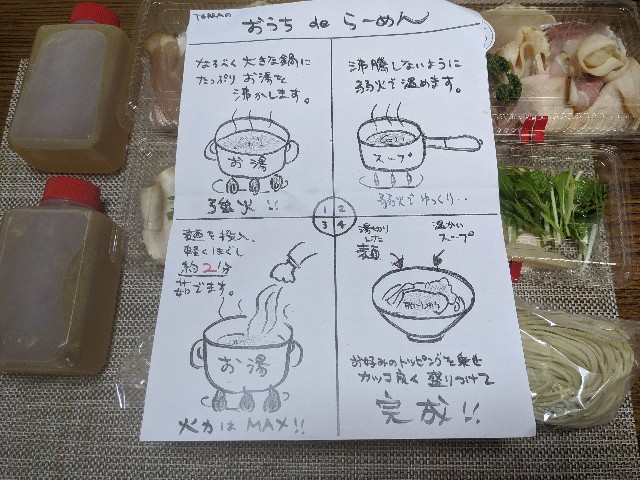 おうち de らーめん
なるべく大きな鍋に
たっぷりお湯を
沸かします。
お湯
強火!!
沸騰しないように
弱火で温めます。
スープ
弱火でゆっくり・・
1 2
3 4
麺を投入、
軽くほぐし
約2分
茹でます。
お湯
火力はMAX!!
湯切り
した
麺
温かい
スープ
お好みのトッピングを乗せ
カッコ良く盛りつけて
完成!!